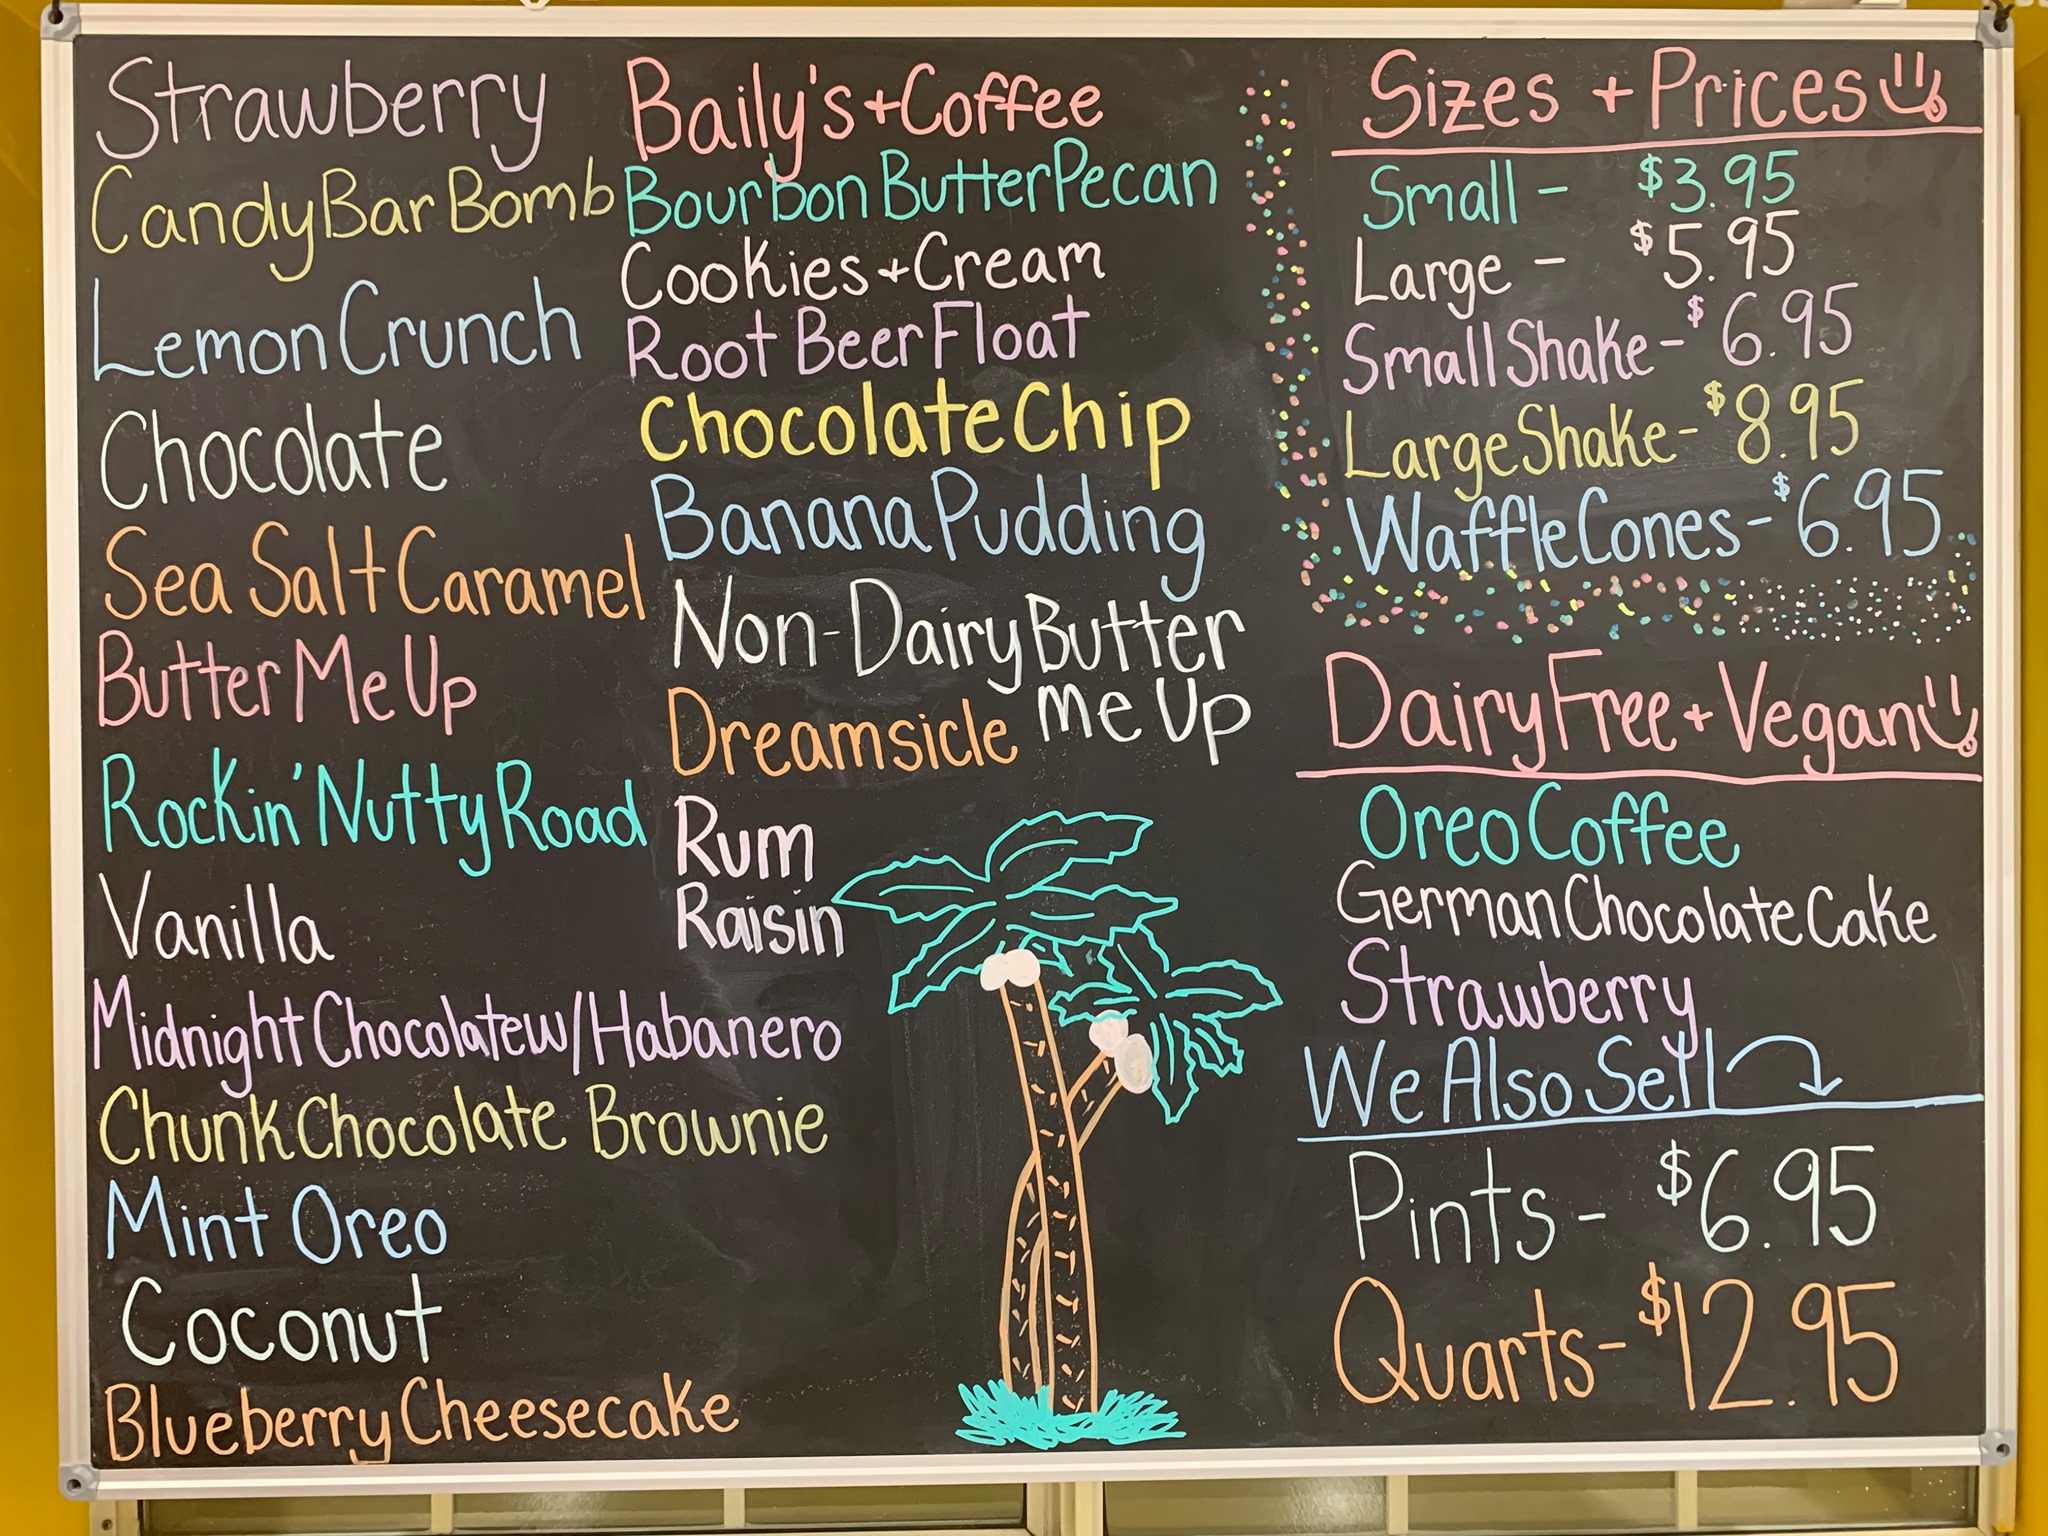 Strawberry
Candy Bar Bomb
Lemon Crunch
Chocolate
Sea Salt Caramel
Butter Me Up
Rockin' Nutty Road
Vanilla
Midnight Chocolate w/ Habanero
Chunk Chocolate Brownie
Mint Oreo
Coconut
Blueberry Cheesecake
Baily's + Coffee
Bourbon Butter Pecan
Cookies + Cream
Root Beer Float
Chocolate Chip
Banana Pudding
Non-Dairy Butter
me Up
Dreamsicle
Rum
Raisin
Sizes + Prices
Small - $3.95
Large - $5.95
Small Shake - $6.95
Large Shake - $8.95
Waffle Cones - $6.95
Dairy Free + Vegan
Oreo Coffee
German Chocolate Cake
Strawberry
We Also Sell
Pints - $6.95
Quarts - $12.95